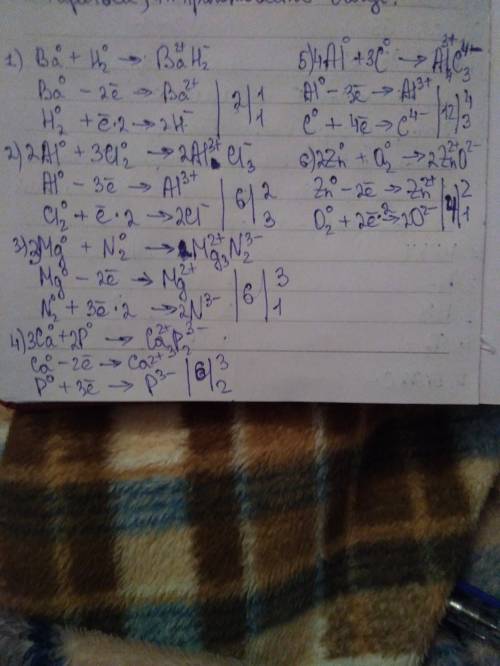 1) Ba⁰ + H₂⁰ → Ba²⁺H₂⁻
Ba⁰ - 2ē → Ba²⁺ | 2 | 1
H₂⁰ + ē·2 → 2H⁻ | 1
2) 2Al⁰ + 3Cl₂⁰ → 2Al³⁺Cl₃⁻
Al⁰ - 3ē → Al³⁺ | 6 | 2
Cl₂⁰ + ē·2 → 2Cl⁻ | 3
3) 3Mg⁰ + N₂⁰ → Mg₃²⁺N₂³⁻
Mg⁰ - 2ē → Mg²⁺ | 6 | 3
N₂⁰ + 3ē·2 → 2N³⁻ | 1
4) 3Ca⁰ + 2P⁰ → Ca₃²⁺P₂³⁻
Ca⁰ - 2ē → Ca²⁺ | 6 | 3
P⁰ + 3ē → P³⁻ | 2
5) 4Al⁰ + 3C⁰ → Al₄³⁺C₃⁴⁻
Al⁰ - 3ē → Al³⁺ | 12 | 4
C⁰ + 4ē → C⁴⁻ | 3
6) 2Zn⁰ + O₂⁰ → 2Zn²⁺O²⁻
Zn⁰ - 2ē → Zn²⁺ | 4 | 2
O₂⁰ + 2ē·2 → 2O²⁻ | 1